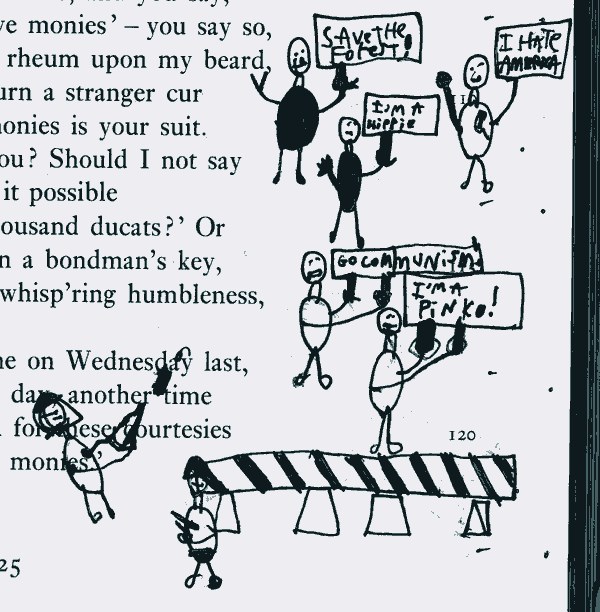 and you say,
ve monies' – you say so,
rheum upon my beard,
urn a stranger cur
onies is your suit.
ou? Should I not say
it possible
ousand ducats?' Or
n a bondman's key,
whisp'ring humbleness,
ne on Wednesday last,
day another time
for these courtesies
monies.'
25
SAVE THE
FOREST!
I HATE
AMERICA
I'M A
HiPPiE
GO COMMUNISM!
I'M A
PiNKO!
120